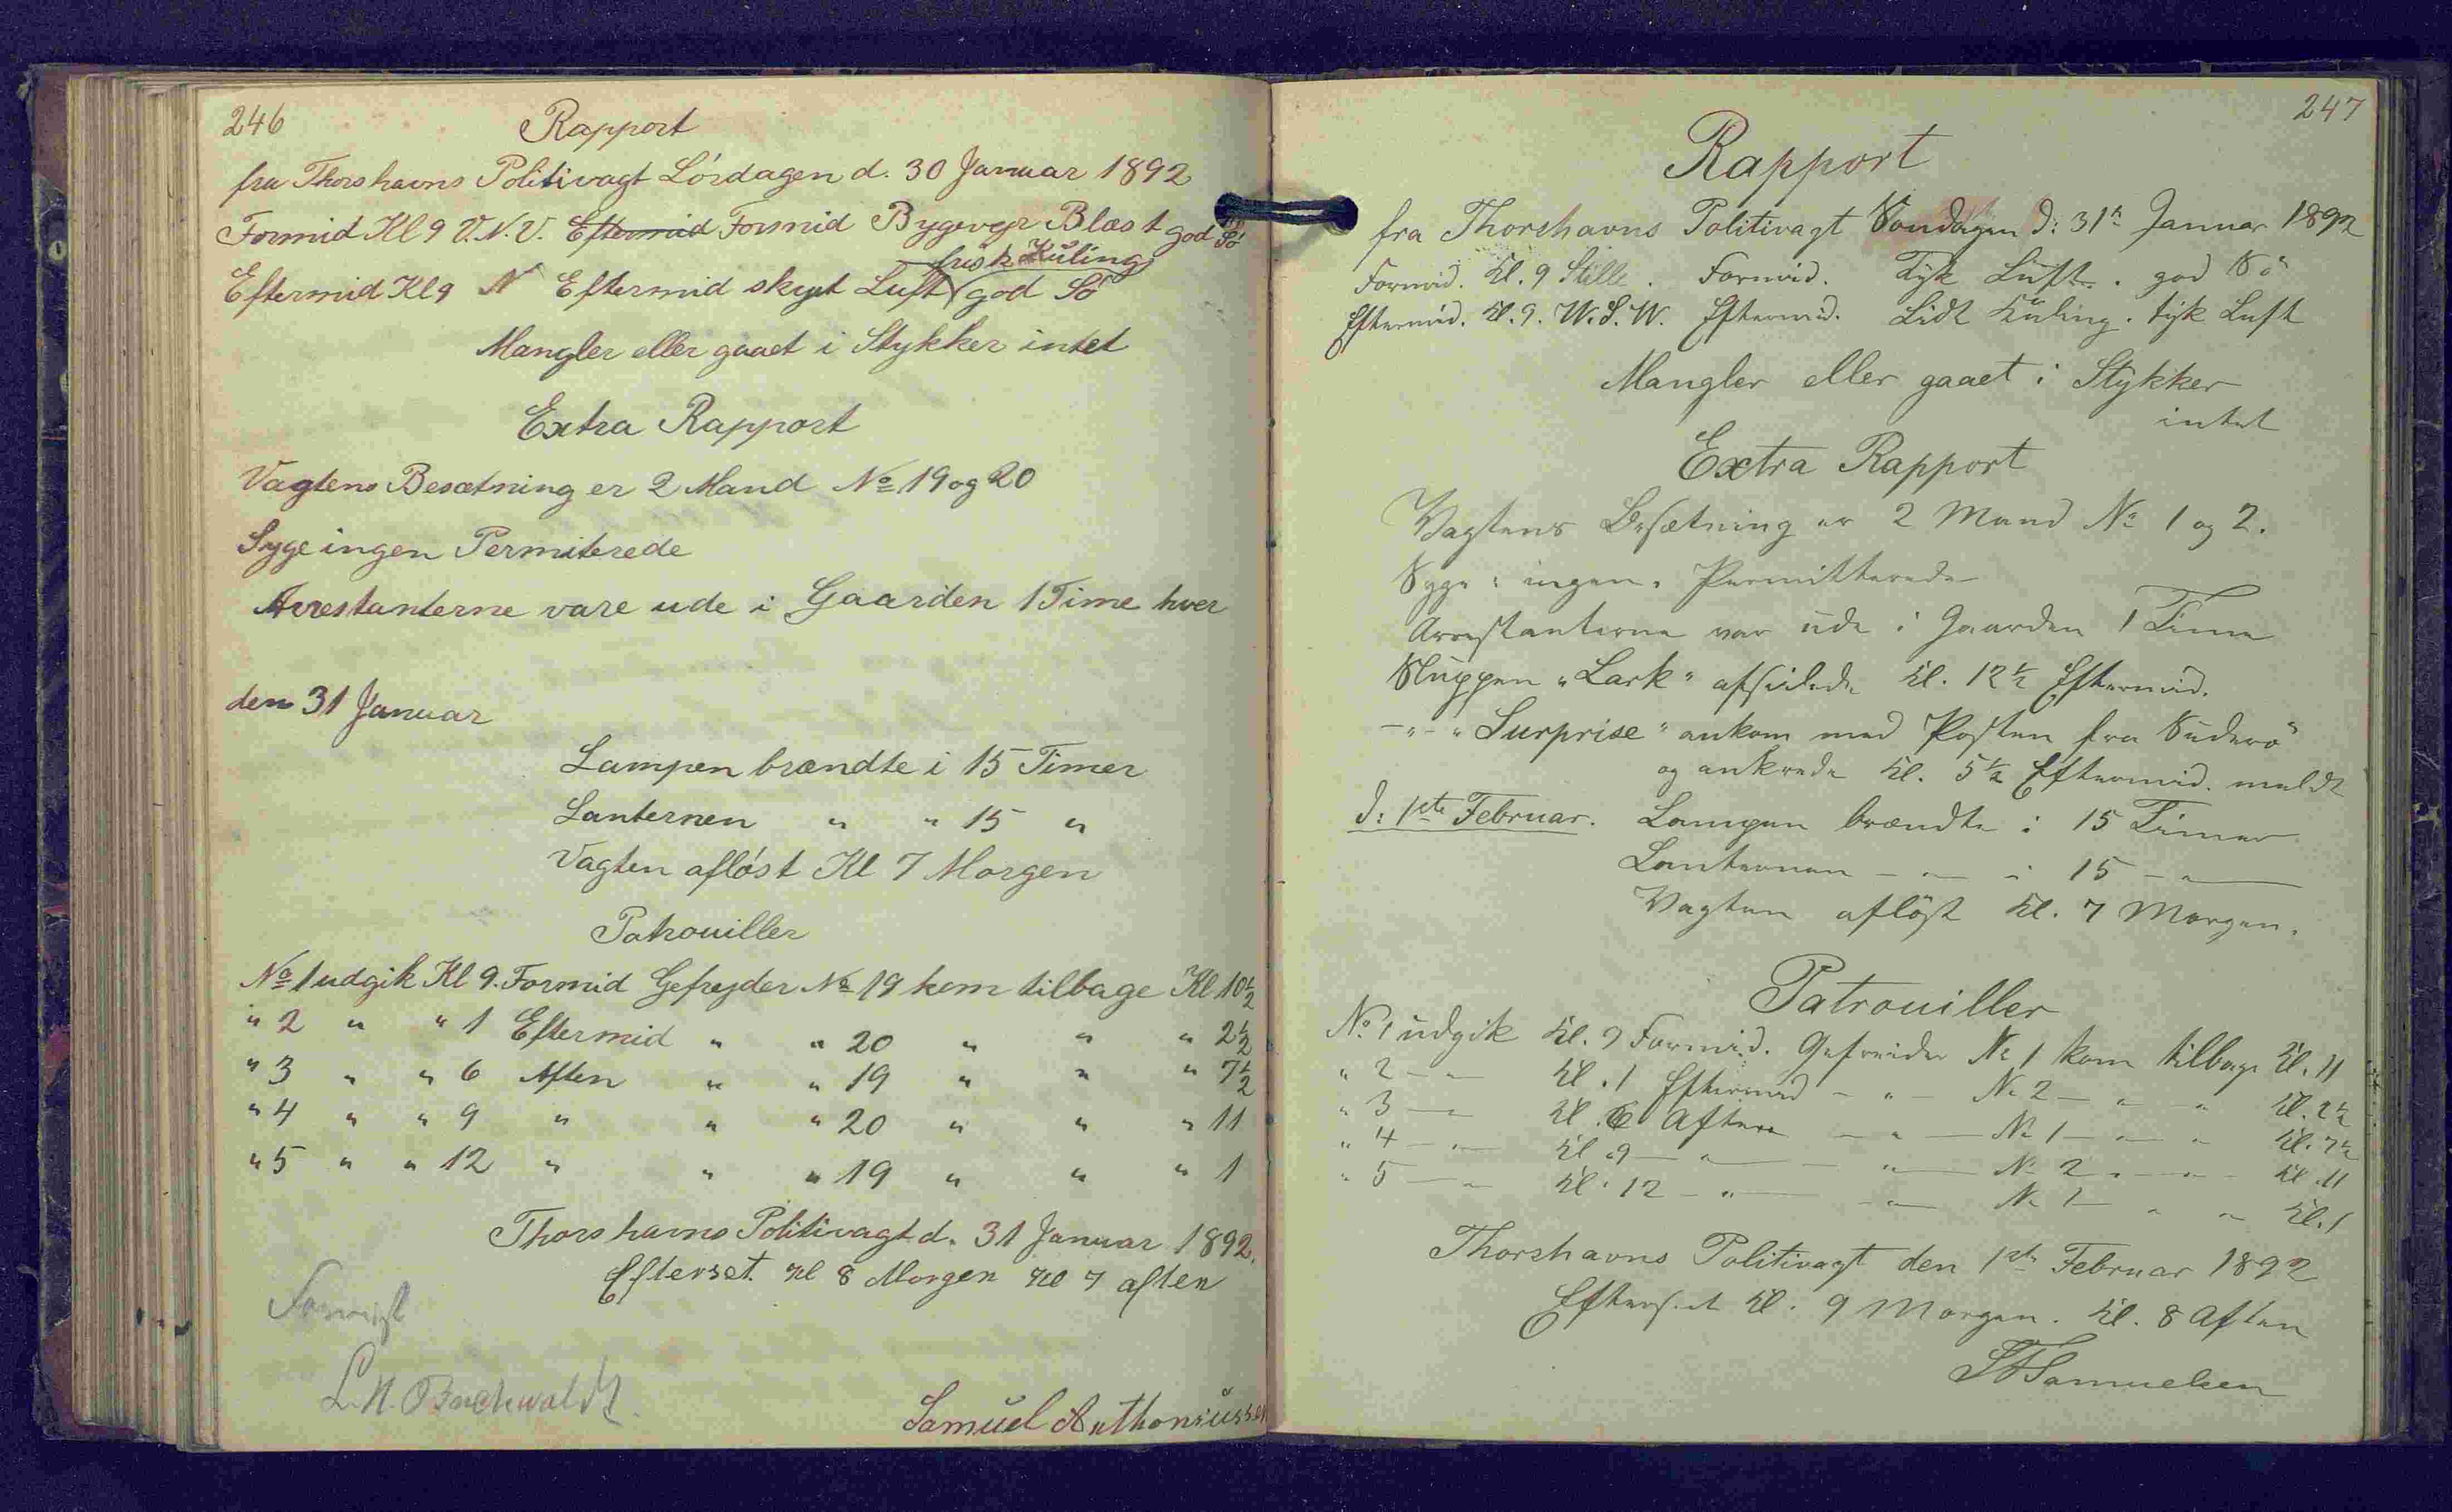 246
Rapport
fra Thorshavns Politivagt Lördagen d. 30 Januar 1892
Formid Kl 9 V.N.V. Eftermid Formid Bygevejr Blæst god Sö
frisk Kuling
Eftermid Kl 9 N Eftermid skyet Luft god Sö
Mangler eller gaaet i Stykker intet
Extra Rapport
Vagtens Besætning er 2 Mand No 19 og 20
Syge ingen Permiterede
Arrestanterne vare ude i Gaarden 1 Time hver
den 31 Januar
Lampen brændte i 15 Timer
Lanternen " " 15 "
Vagten aflöst Kl 7 Morgen
Patrouiller
No 1 udgik Kl 9. Formid Gefrejder No 19 kom tilbage Kl 10½
" 2 " " 1 Eftermid " " 20 " " " 2½
" 3 " " 6 Aften " " 19 " " " 7½
" 4 " " 9 " " " 20 " " " 11
" 5 " " 12 " " " 19 " " " 1
Thorshavns Politivagt d. 31 Januar 1892.
Efterset Kl 8 Morgen Kl 7 aften
Forevist
L.H. Buchwaldt.
Samuel Anthoniussen
247
Rapport
fra Thorshavns Politivagt Söndagen d: 31te Januar 1892
Formid. Kl. 9 Stille. Formid. Tyk Luft. god Sö
Eftermid. Kl. 9. W.S.W. Eftermid. Lidt Kuling. tyk Luft
Mangler eller gaaet i Stykker
intet
Extra Rapport
Vagtens Besætning er 2 Mand No 1 og 2.
Syge: ingen. Permitterede
Arrestanterne var ude i Gaarden 1 Time
Sluppen "Lark" afseilede Kl. 12½ Eftermid.
-"- "Surprise" ankom med Posten fra Suderö
og ankrede Kl. 5½ Eftermid. meldt
d: 1ste Februar. Lampen brændte i 15 Timer
Lanternen - " - i 15 - " -
Vagten aflöst Kl. 7 Morgen.
Patrouiller
No 1 udgik Kl. 9 Formid. Gefreider No 1 kom tilbage Kl. 11
" 2 - " - Kl. 1 Eftermid - " - No 2 - " - " Kl. 2½
" 3 - " - Kl. 6 Aften - " - No 1 - " - " Kl. 7½
" 4 - " - Kl. 9 - " - - " - No 2 " - " - Kl. 11
" 5 - " - Kl. 12 - " - - " - No 1 - " " Kl. 1
Thorshavns Politivagt den 1ste Februar 1892
Efterset Kl. 9 Morgen. Kl. 8 Aften
Samuelsen